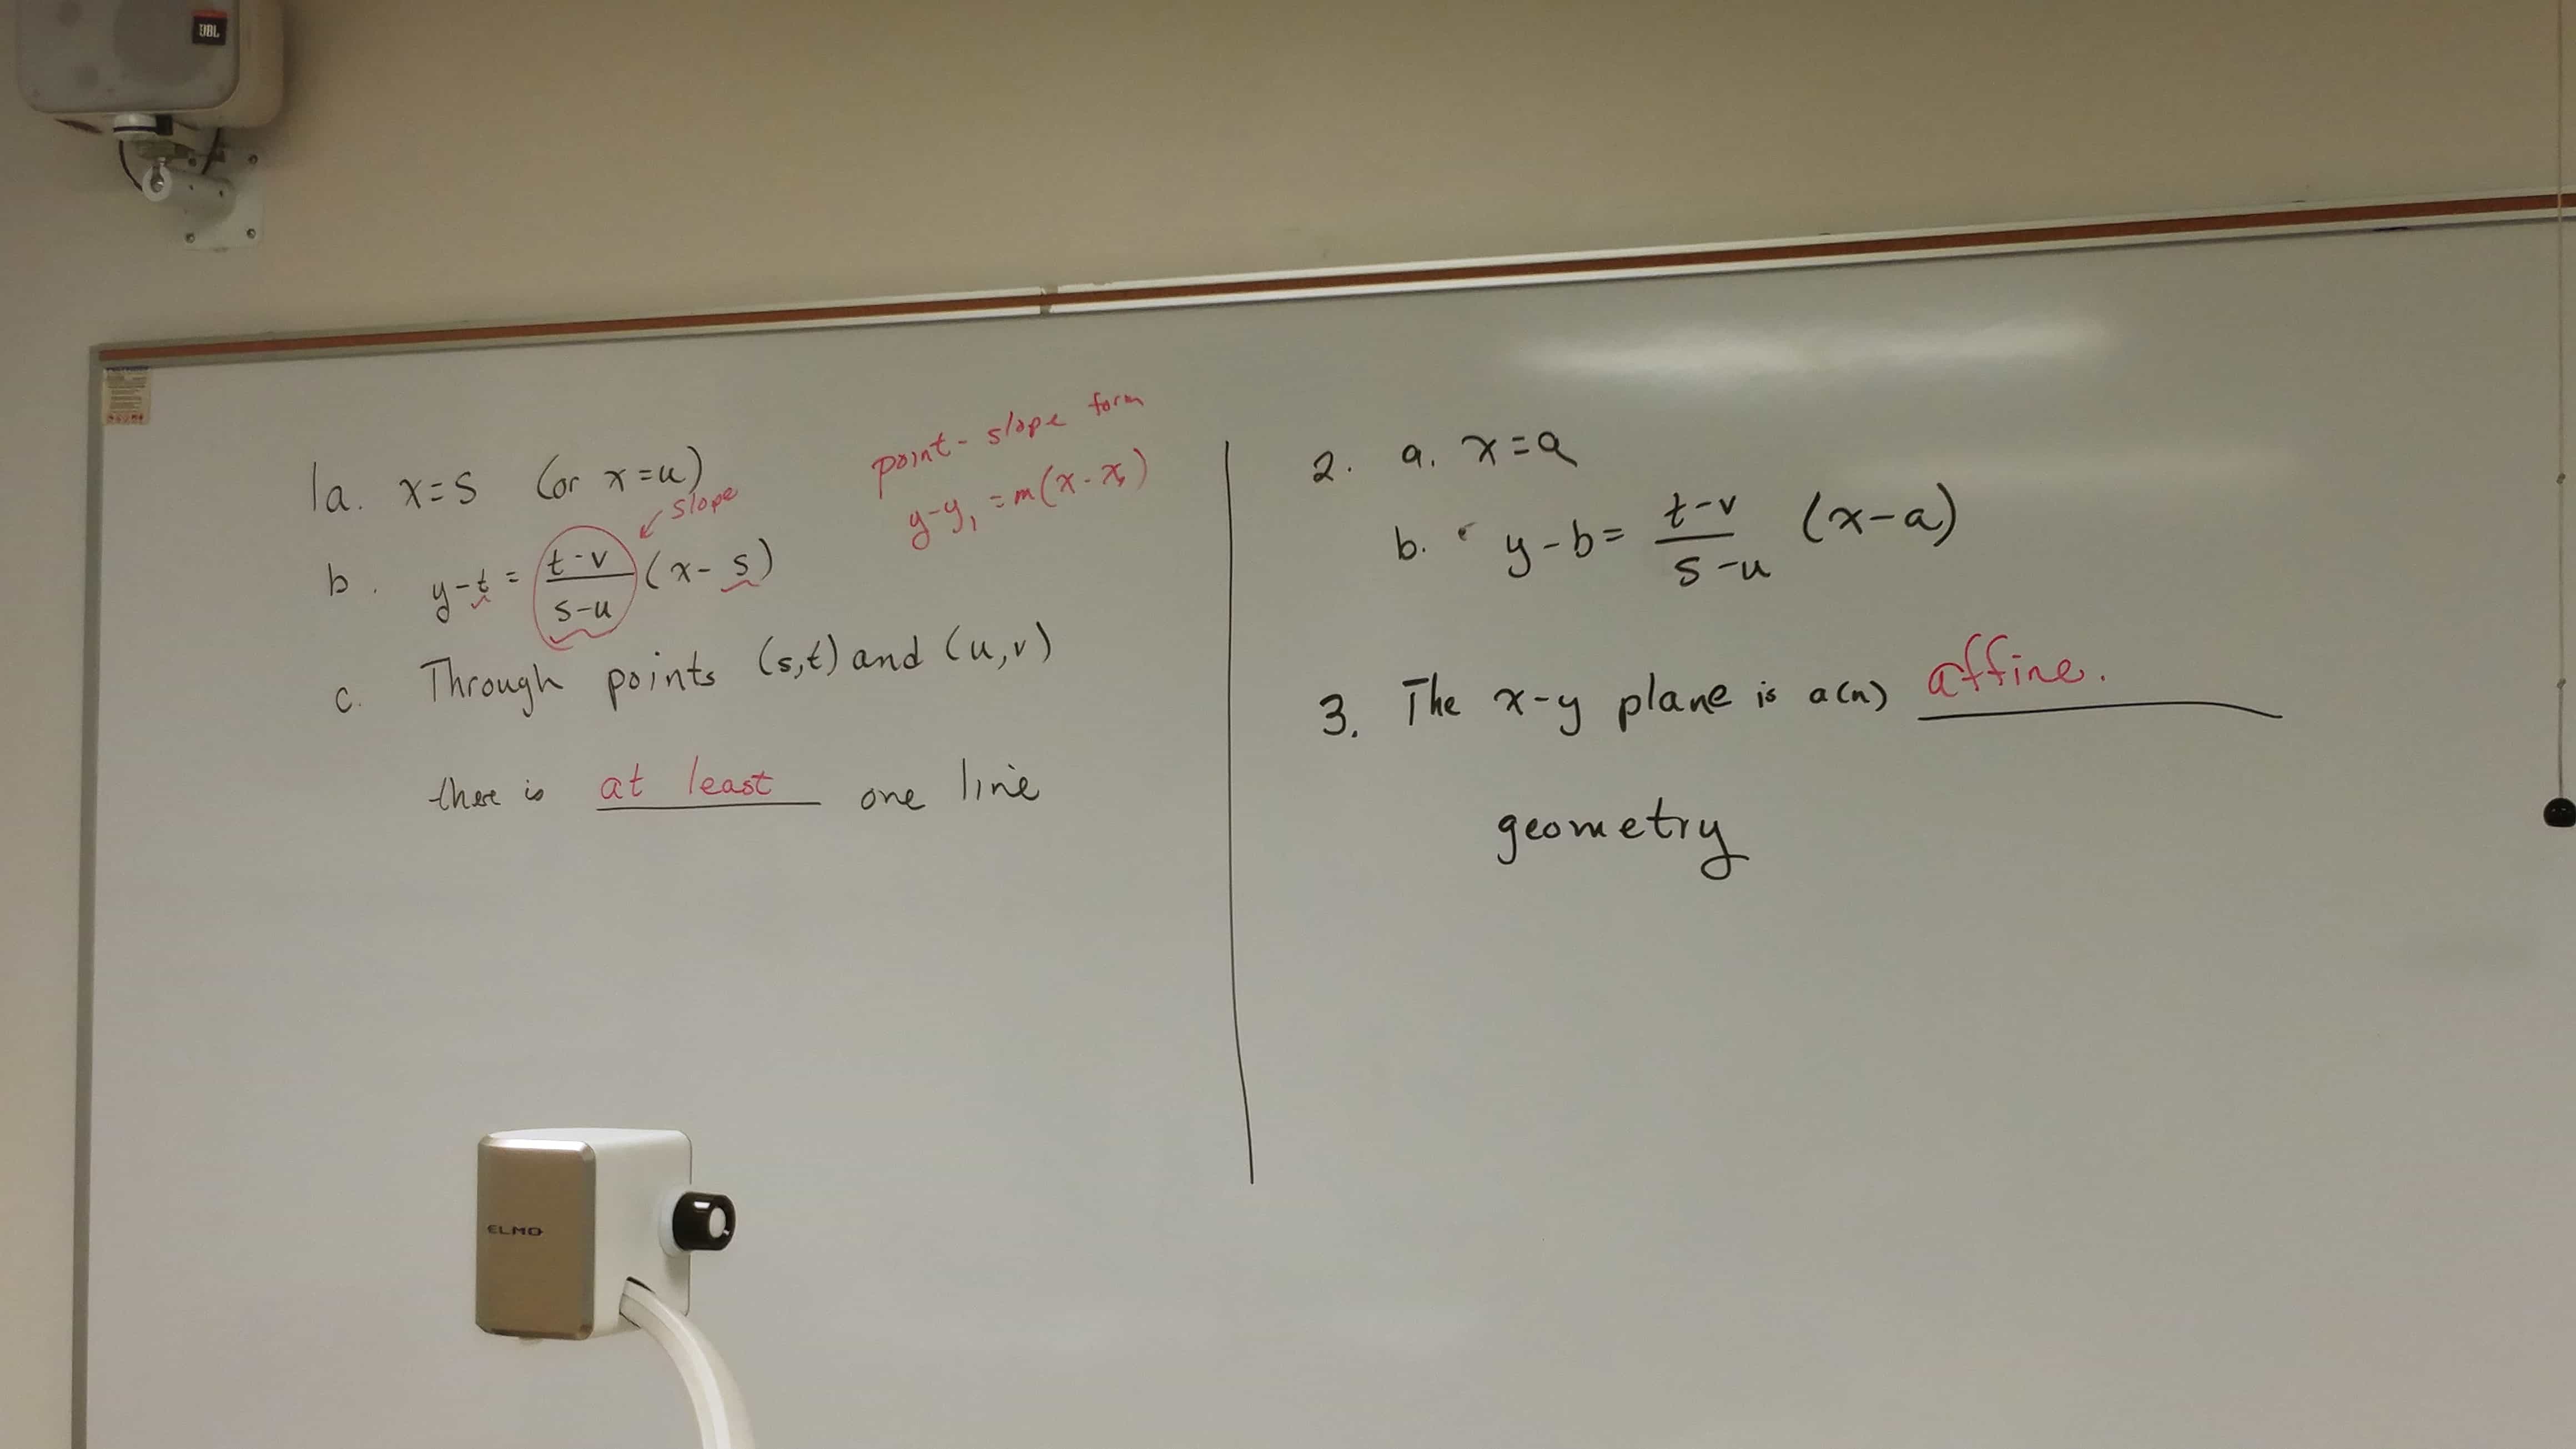 JBL
point-slope form
y-y₁ = m(x-x₁)
1a. x=s (or x=u)
slope
b. y-t = (t-v)/(s-u) (x-s)
c. Through points (s,t) and (u,v)
there is at least one line
2. a. x=a
b. y-b = (t-v)/(s-u) (x-a)
3. The x-y plane is a(n) affine.
geometry
ELMO